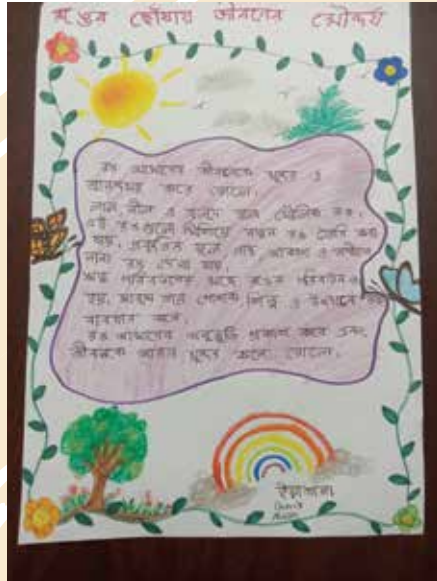 রঙের ছোঁয়ায় জীবনের সৌন্দর্য
রঙ আমাদের জীবনকে সুন্দর ও
আনন্দময় করে তোলে।
লাল, নীল ও হলুদ হলো মৌলিক রঙ,
এই রঙগুলো মিশিয়ে নতুন রঙ তৈরি করা
যায়। প্রকৃতির ফুল, গাছ, আকাশ ও
নানা রঙ দেখা যায়।
ঋতু পরিবর্তনের সাথে রঙের পরিবর্তন
হয়, মানুষ তার পোশাক, শিল্প ও উৎসবে রঙ
ব্যবহার করে।
রঙ আমাদের অনুভূতি প্রকাশ করে এবং
জীবনকে আরও সুন্দর করে তোলে।